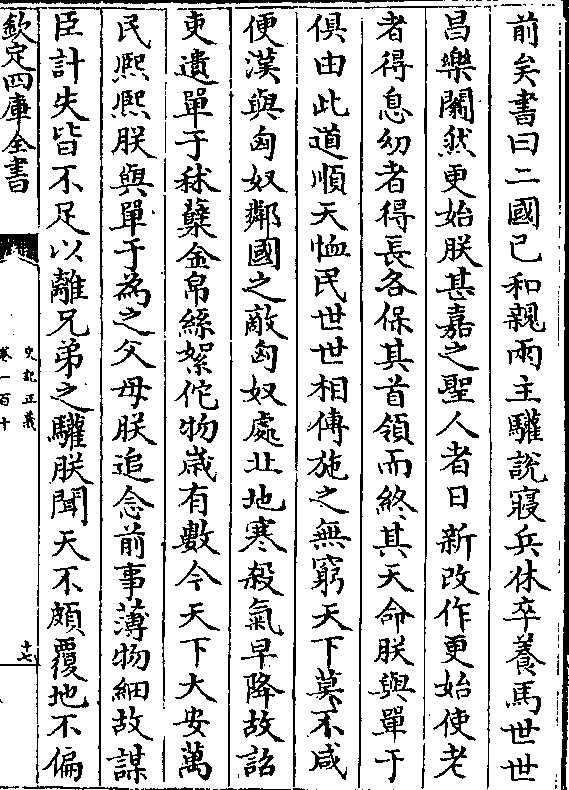 前矣書曰二國已和親兩主驩説寢兵休卒養馬世世
昌樂闟然更始朕甚嘉之聖人者日新改作更始使老
者得息幼者得長各保其首領而終其天命朕與單于
俱由此道順天恤民世世相傳施之無窮天下莫不咸
便漢與匈奴鄰國之敵匈奴處北地寒殺氣早降故詔
吏遺單于秫糵金帛絲絮佗物嵗有數今天下大安萬
民熙熙朕與單于為之父母朕追念前事薄物細故謀
臣計失皆不足以離兄弟之驩朕聞天不頗覆地不偏
欽定四庫全書
史記正義
卷一百十
十七